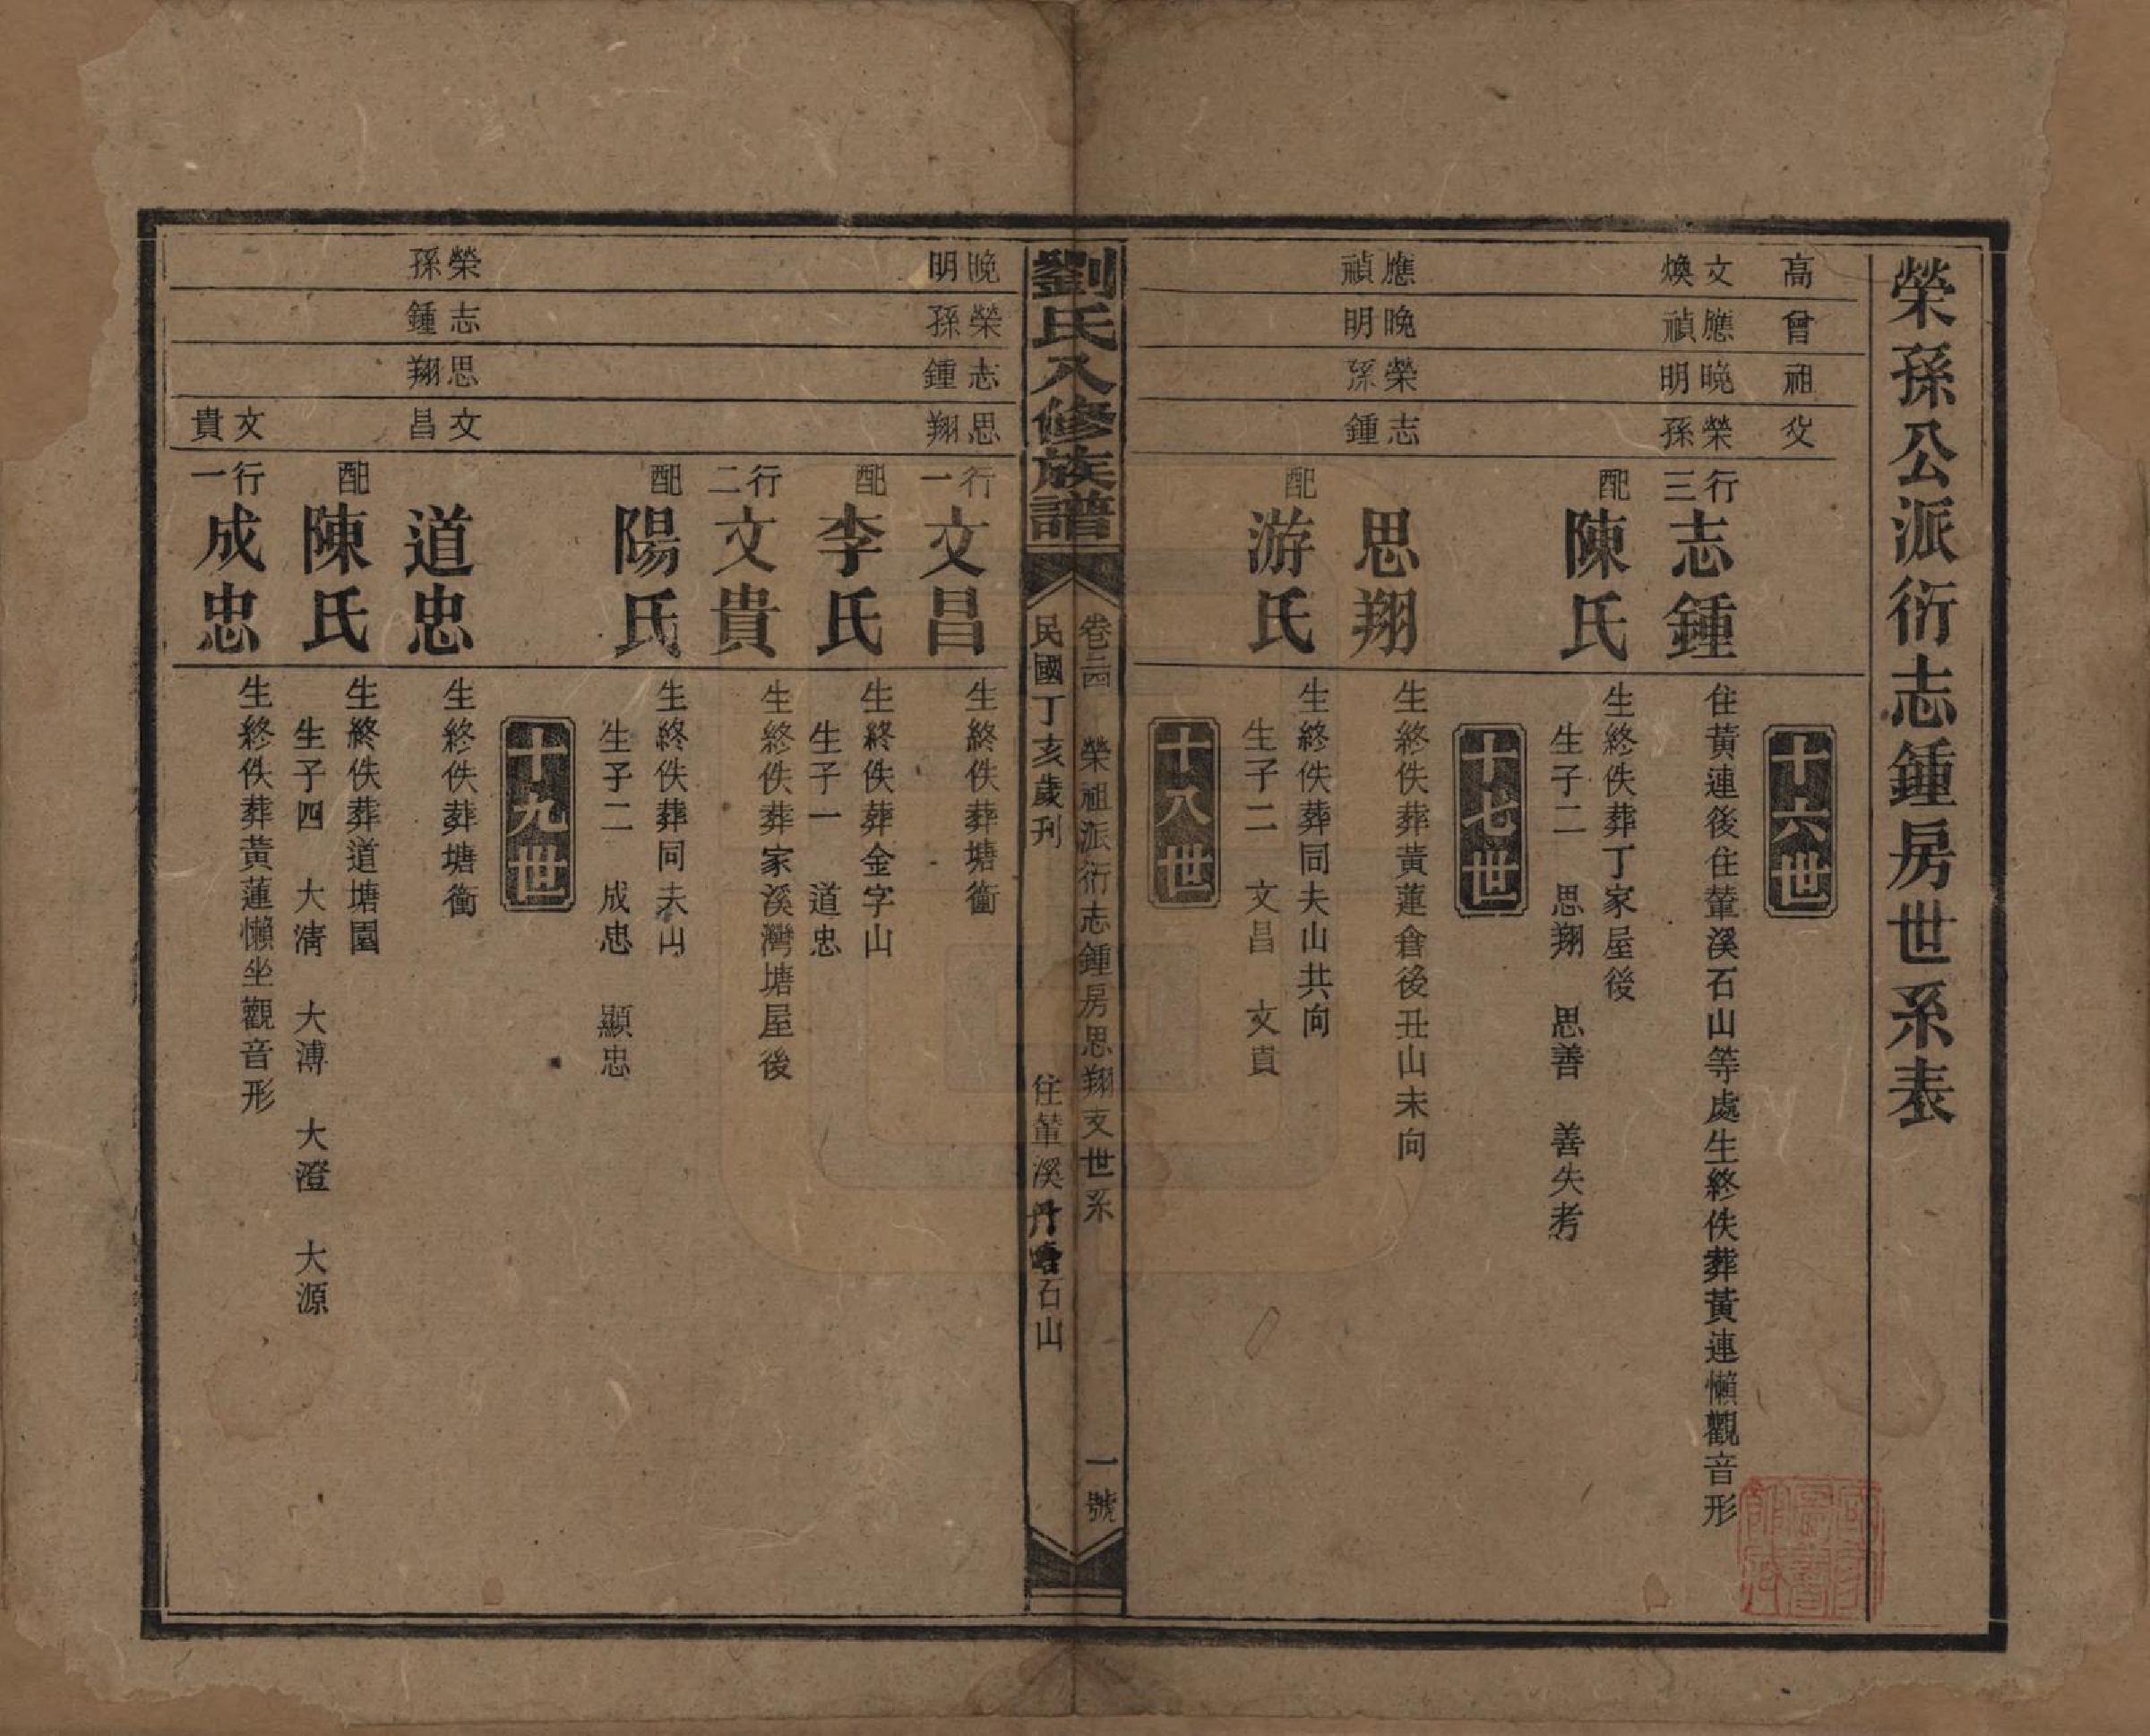 榮孫公派衍志鍾房世系表
高曾祖父
十六世
文煥
應禎
晚明
榮孫
行三
志鍾
住黃連後住輋溪石山等處生終佚葬黃連懶觀音形
配
陳氏
生終佚葬丁家屋後
生子二 思翔 思善 善失考
十七世
應禎
晚明
榮孫
志鍾
思翔
生終佚葬黃蓮倉後丑山未向
配
游氏
生終佚葬同夫山共向
生子二 文昌 文貴
十八世
劉氏八修族譜
榮祖派衍志鍾房思翔支世系
一號
民國丁亥歲刊
住輋溪
石山
晚明
榮孫
志鍾
思翔
行一
文昌
生終佚葬塘衝
配
李氏
生終佚葬金字山
生子一 道忠
行二
文貴
生終佚葬家溪灣塘屋後
配
陽氏
生終佚葬同夫山
生子二 成忠 顯忠
十九世
榮孫
志鍾
思翔
文昌
道忠
生終佚葬塘衝
配
陳氏
生終佚葬道塘園
生子四 大清 大溥 大澄 大源
文貴
行一
成忠
生終佚葬黃蓮懶坐觀音形